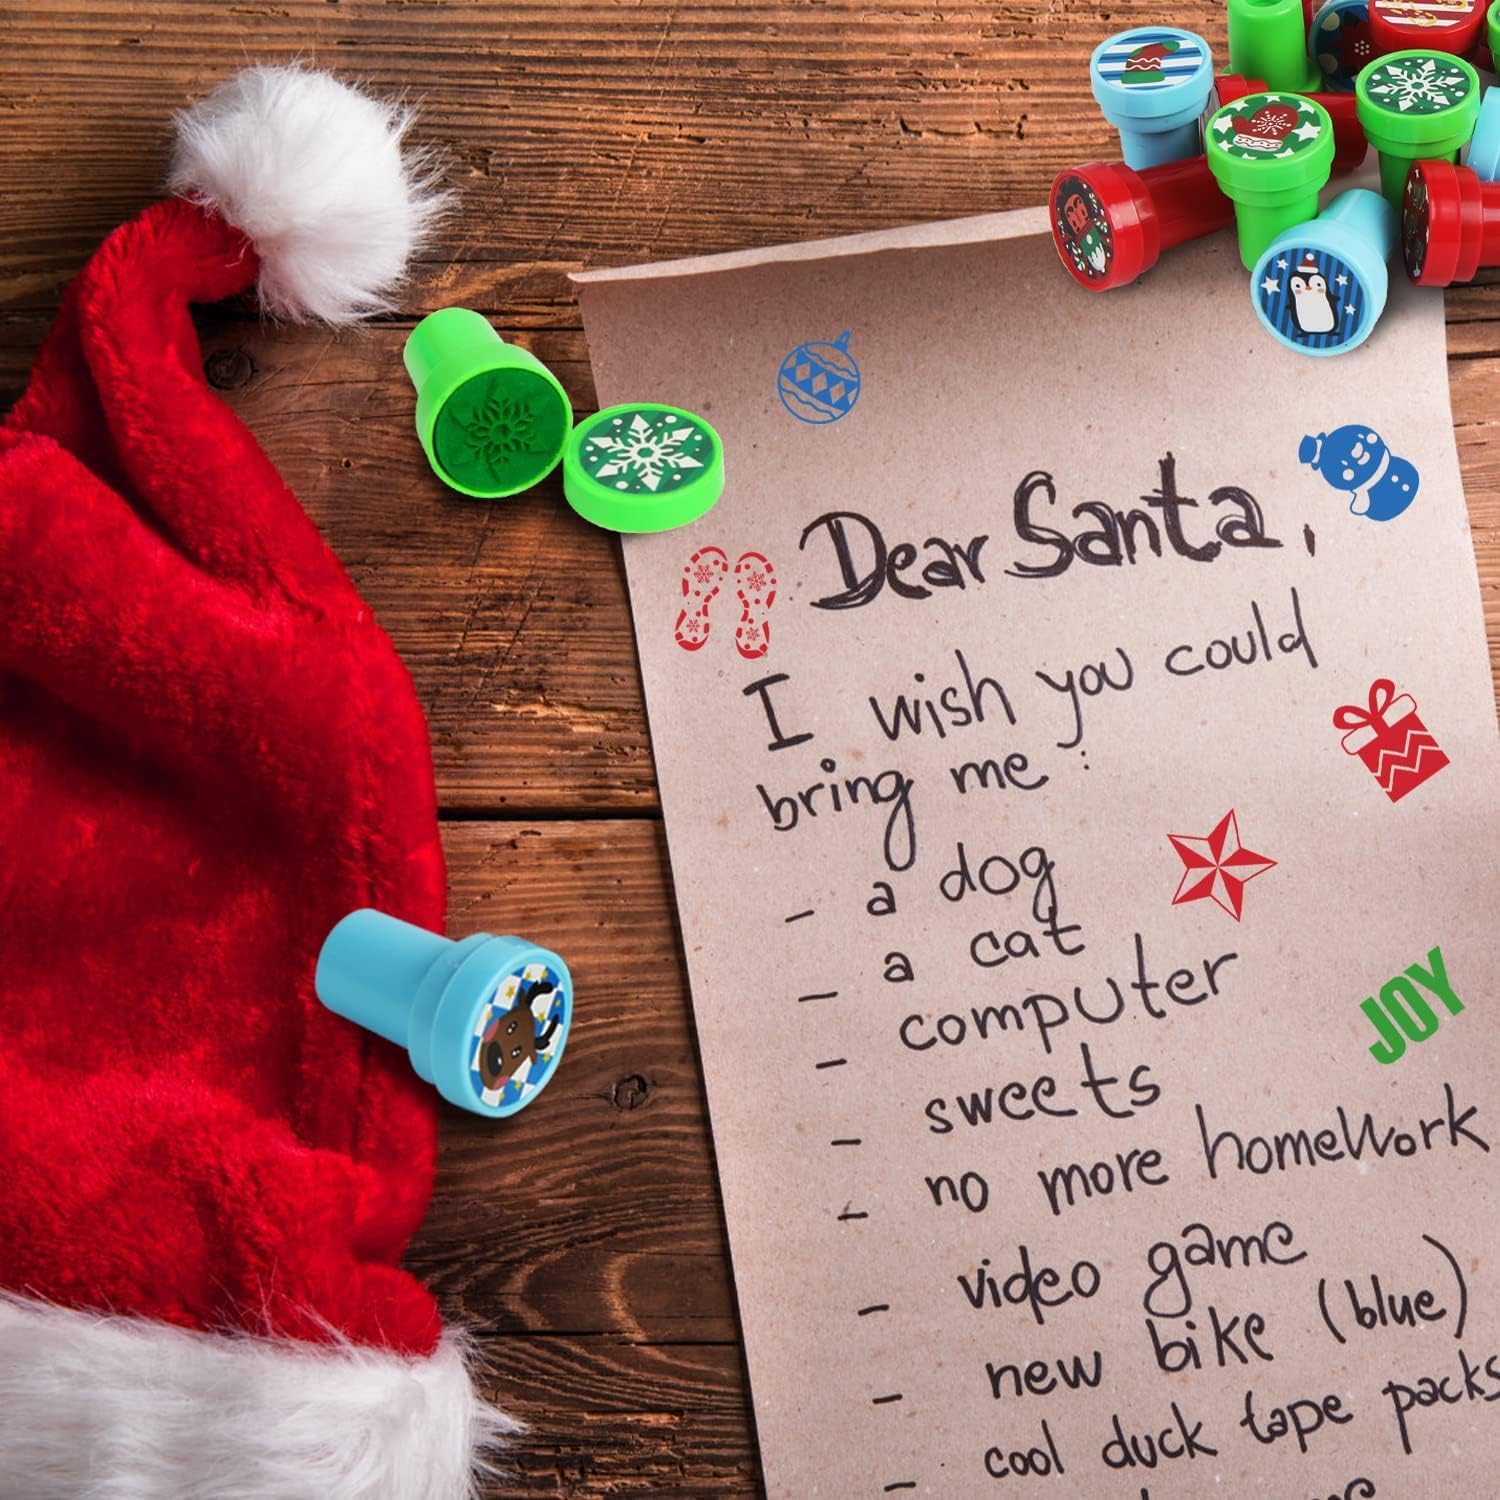 Dear Santa,
I wish you could
bring me :
- a dog
- a cat
- computer
- sweets
- no more homework
- video game
- new bike (blue)
- cool duck tape packs
JOY